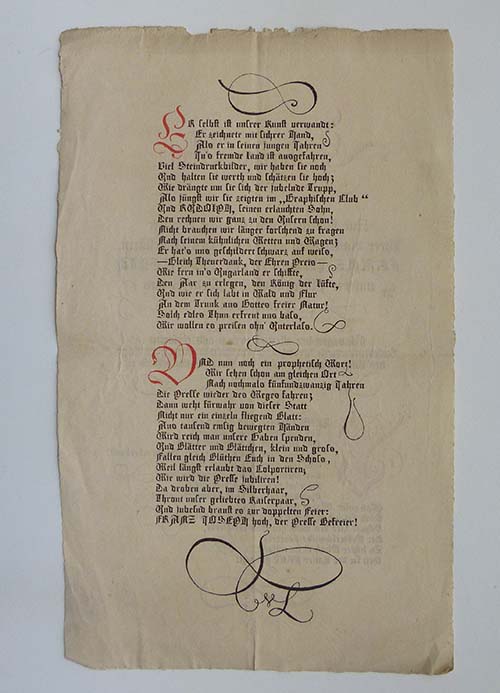 ER selbst ist unsrer Kunst verwandt:
Er zeichnete mit sichrer Hand,
Als er in seinen jungen Jahren
In's fremde Land ist ausgefahren,
Viel Steindruckbilder, wir haben sie noch
Und halten sie werth und schätzen sie hoch;
Wie drängte um sie sich der jubelnde Trupp,
Als jüngst wir sie zeigten im „Graphischen Club“
Und RUDOLPH, seinen erlauchten Sohn,
Den rechnen wir ganz zu den Unsern schon!
Nicht brauchen wir länger forschend zu fragen
Nach seinem kühnlichen Retten und Wagen;
Er hat's uns geschildert schwarz auf weiss,
—Gleich Theuerdank, der Ehren Preis—
Wie fern in's Ungarland er schiffte,
Den Aar zu erlegen, den König der Lüfte,
Und wie er sich labt in Wald und Flur
An dem Trunk aus Gottes freier Natur!
Solch edles Thun erfreut uns bass,
Wir wollen es preisen ohn' Unterlass.
UND nun noch ein prophetisch Wort!
Wir sehen schon am gleichen Ort
Nach nochmals fünfundzwanzig Jahren
Die Presse wieder des Weges fahren;
Dann weht fürwahr von dieser Statt
Nicht nur ein einzeln fliegend Blatt:
Aus tausend emsig bewegten Händen
Wird reich man unsre Gaben spenden,
Und Blätter und Blättchen, klein und gross,
Fallen gleich Blüthen Euch in den Schoss,
Weil längst erlaubt das Colportiren;
Wie wird die Presse jubiliren!
Da droben aber, im Silberhaar,
Thront unser geliebtes Kaiserpaar,
Und jubelnd braust es zur doppelten Feier:
FRANZ JOSEPH hoch, der Presse Befreier!